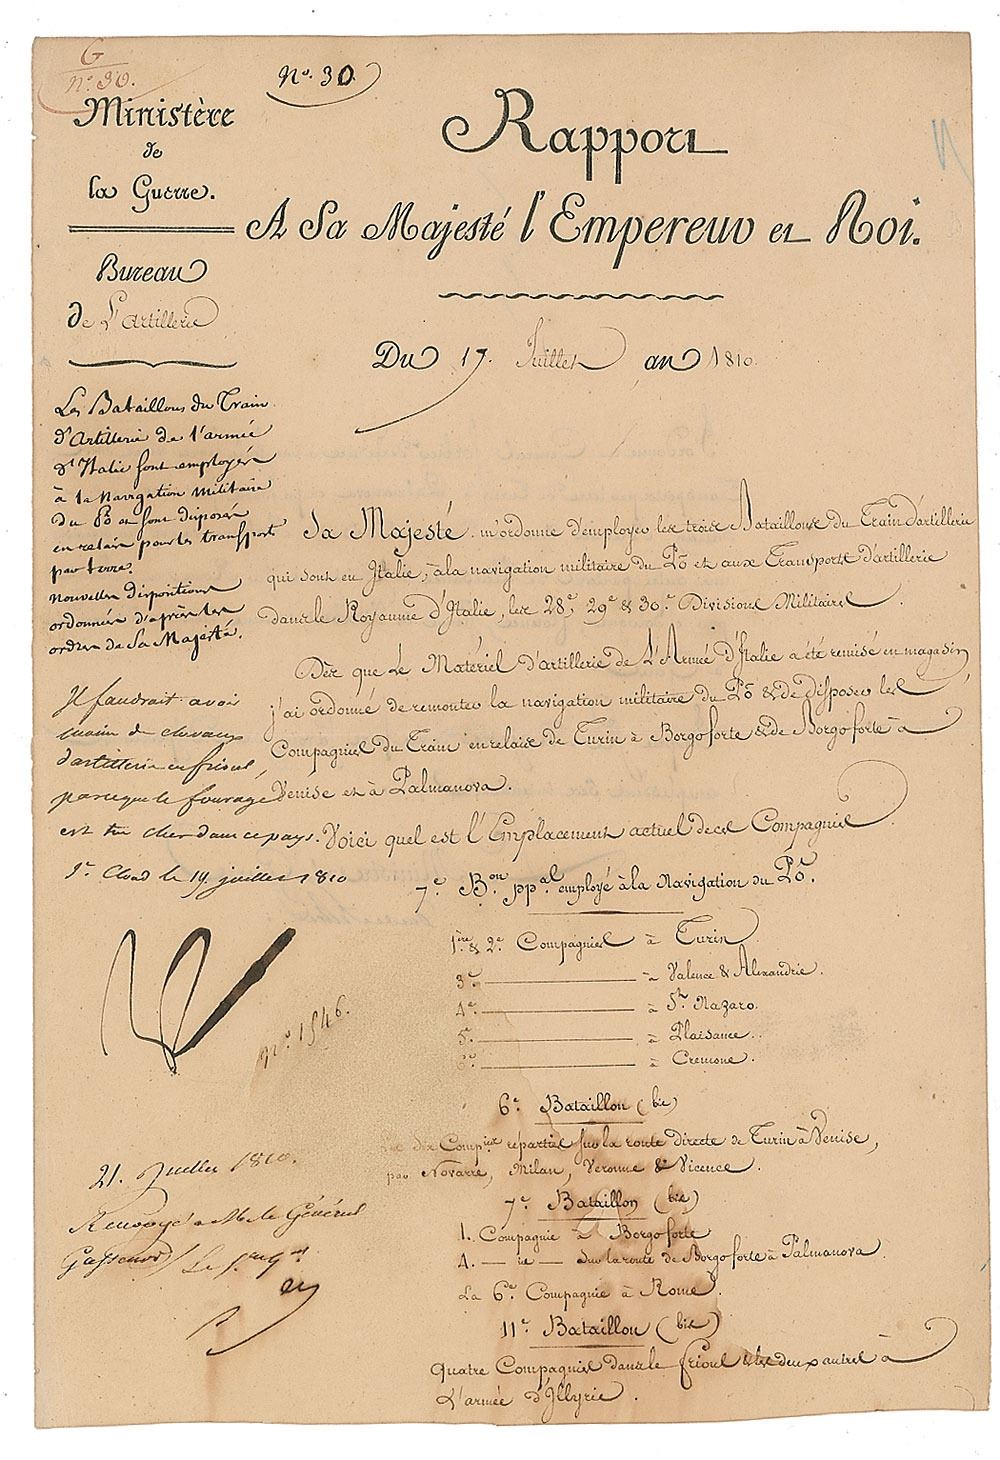 G
N° 30.
N° 30
Ministère
de
la Guerre.
Bureau
de L'artillerie
Rapport
A Sa Majesté l'Empereur et Roi.
Du 17. Juillet an 1810.
Les Bataillons du Train
d'Artillerie de l'armée
d'Italie sont employés
à la navigation militaire
du Pô et sont disposés
en relais pour les transports
par terre.
nouvelles dispositions
ordonnées d'après les
ordres de Sa Majesté.
Il faudrait avoir
moins de chevaux
d'artillerie en frioul,
parceque le fourage
est très cher dans ce pays.
St Cloud le 19 juillet 1810
Sa Majesté m'ordonne d'employer les trois Bataillons du Train d'artillerie
qui sont en Italie, à la navigation militaire du Pô et aux Transports d'artillerie
dans le Royaume d'Italie, les 28e, 29e & 30e Divisions Militaires.
Dès que Le Matériel d'artillerie de L'Armée d'Italie a été remisé en magasin,
j'ai ordonné de remonter la navigation militaire du Pô & de disposer les
Compagnies du Train en relais de Turin à Borgoforte & de Borgoforte à
Venise et à Palmanova.
Voici quel est l'Emplacement actuel de ces Compagnies
7e Bon ppal employé à la Navigation du Pô.
1ère & 2e Compagnies à Turin
3e à Valence & Alexandrie.
4e à St Nazaro.
5e à Plaisance.
6e à Cremone.
6e Bataillon (bis)
dix Compies réparties sur la route directe de Turin à Venise,
par Novarre, Milan, Veronne & Vicence.
7e Bataillon (bis)
1. Compagnie à Borgoforte
4. — ie — sur la route de Borgoforte à Palmanova.
La 6e Compagnie à Rome.
11e Bataillon (bis)
quatre Compagnies dans le frioul & les deux autres à
L'armée d'Illyrie.
N° 1546.
21. Juillet 1810.
Renvoyé à Mr le Général
Gassendi